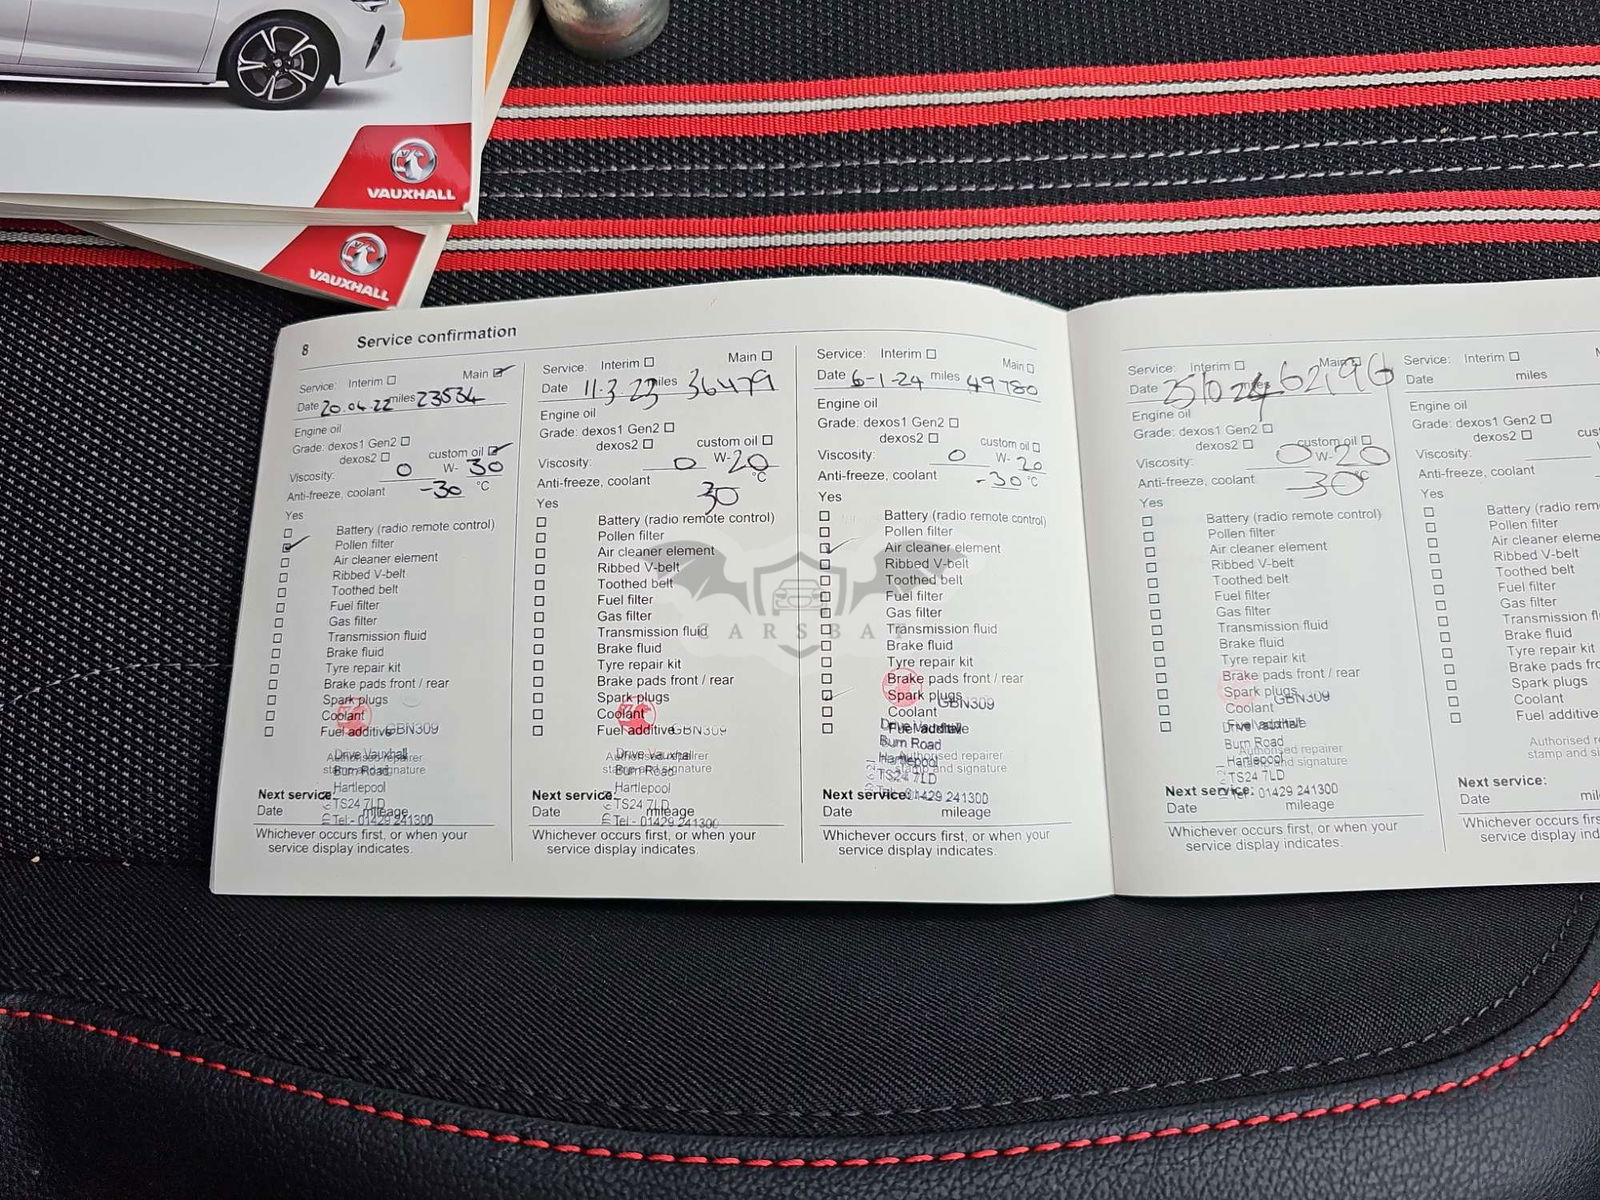 VAUXHALL
VAUXHALL
8 Service confirmation
Service: Interim Main
Date 20.04.22 miles 23534
Engine oil
Grade: dexos1 Gen2
dexos2 custom oil
Viscosity: 0 W- 30
Anti-freeze, coolant -30 °C
Yes
Battery (radio remote control)
Pollen filter
Air cleaner element
Ribbed V-belt
Toothed belt
Fuel filter
Gas filter
Transmission fluid
Brake fluid
Tyre repair kit
Brake pads front / rear
Spark plugs
Coolant
Fuel additive GBN309
Drive Vauxhall
Authorised repairer
Burn Road
stamp and signature
Hartlepool
Next service:
TS24 7LD
Date mileage
Tel:- 01429 241300
Whichever occurs first, or when your
service display indicates.
Service: Interim Main
Date 11.3.23 miles 36479
Engine oil
Grade: dexos1 Gen2
dexos2 custom oil
Viscosity: 0 W- 20
Anti-freeze, coolant 30 °C
Yes
Battery (radio remote control)
Pollen filter
Air cleaner element
Ribbed V-belt
Toothed belt
Fuel filter
Gas filter
Transmission fluid
Brake fluid
Tyre repair kit
Brake pads front / rear
Spark plugs
Coolant
Fuel additive GBN309
Drive Vauxhall
Authorised repairer
Burn Road
stamp and signature
Hartlepool
Next service:
TS24 7LD
Date mileage
Tel:- 01429 241300
Whichever occurs first, or when your
service display indicates.
Service: Interim Main
Date 6-1-24 miles 49780
Engine oil
Grade: dexos1 Gen2
dexos2 custom oil
Viscosity: 0 W- 20
Anti-freeze, coolant -30 °C
Yes
Battery (radio remote control)
Pollen filter
Air cleaner element
Ribbed V-belt
Toothed belt
Fuel filter
Gas filter
Transmission fluid
Brake fluid
Tyre repair kit
Brake pads front / rear
Spark plugs
GBN309
Coolant
Fuel additive
Drive Vauxhall
Burn Road
Authorised repairer
Hartlepool
stamp and signature
TS24 7LD
Next service: Tel:- 01429 241300
Date mileage
Whichever occurs first, or when your
service display indicates.
CARSBAT
Service: Interim Main
Date miles 62196
Engine oil
Grade: dexos1 Gen2
dexos2 custom oil
Viscosity: 0 W- 20
Anti-freeze, coolant -30 °C
Yes
Battery (radio remote control)
Pollen filter
Air cleaner element
Ribbed V-belt
Toothed belt
Fuel filter
Gas filter
Transmission fluid
Brake fluid
Tyre repair kit
Brake pads front / rear
Spark plugs
GBN309
Coolant
Fuel additive
Drive Vauxhall
Burn Road
Authorised repairer
Hartlepool
stamp and signature
TS24 7LD
Next service: Tel:- 01429 241300
Date mileage
Whichever occurs first, or when your
service display indicates.
Service: Interim
Date miles
Engine oil
Grade: dexos1 Gen2
dexos2
Viscosity:
Anti-freeze, coolant
Yes
Battery (radio
Pollen filter
Air cleaner
Ribbed V-belt
Toothed belt
Fuel filter
Gas filter
Transmission
Brake fluid
Tyre repair kit
Brake pads
Spark plugs
Coolant
Fuel additive
Authorised
stamp and
Next service:
Date
Whichever occurs
service display